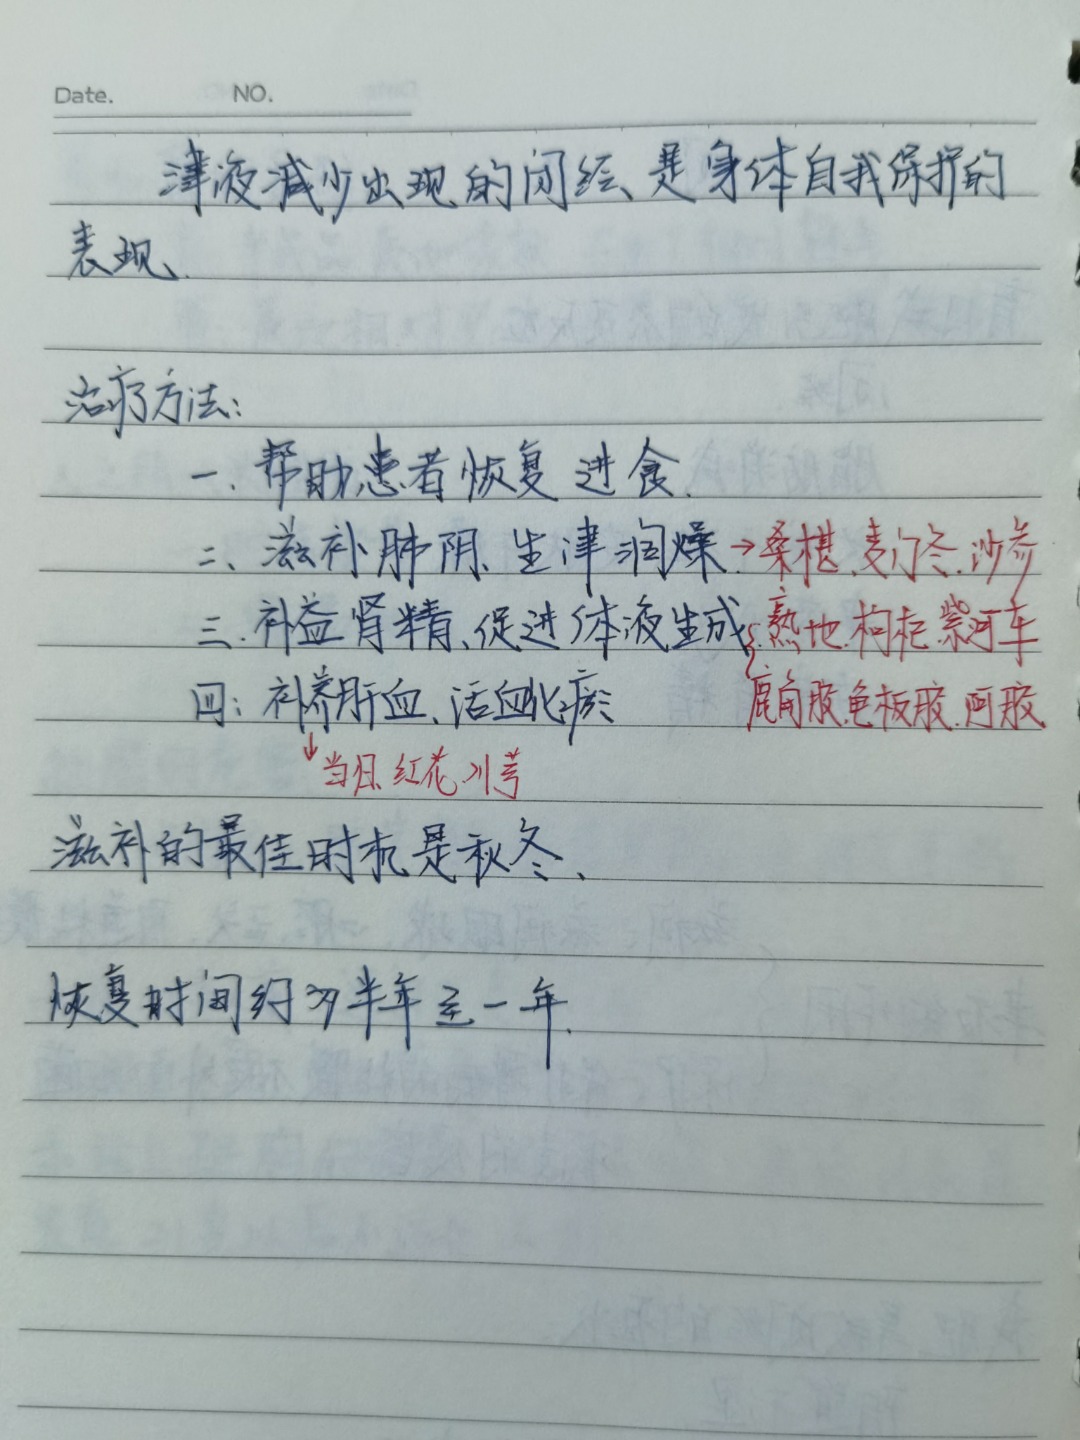 Date. NO.
津液减少出现的闭经、是身体自我保护的
表现、
治疗方法：
一、帮助患者恢复进食、
二、滋补肺阴、生津润燥、→桑椹、麦门冬、沙参
三、补益肾精、促进体液生成、熟地、枸杞、紫河车
鹿角胶、龟板胶、阿胶
四：补养肝血、活血化瘀
↓当归、红花、川芎
滋补的最佳时机是秋冬、
恢复时间约为半年至一年、